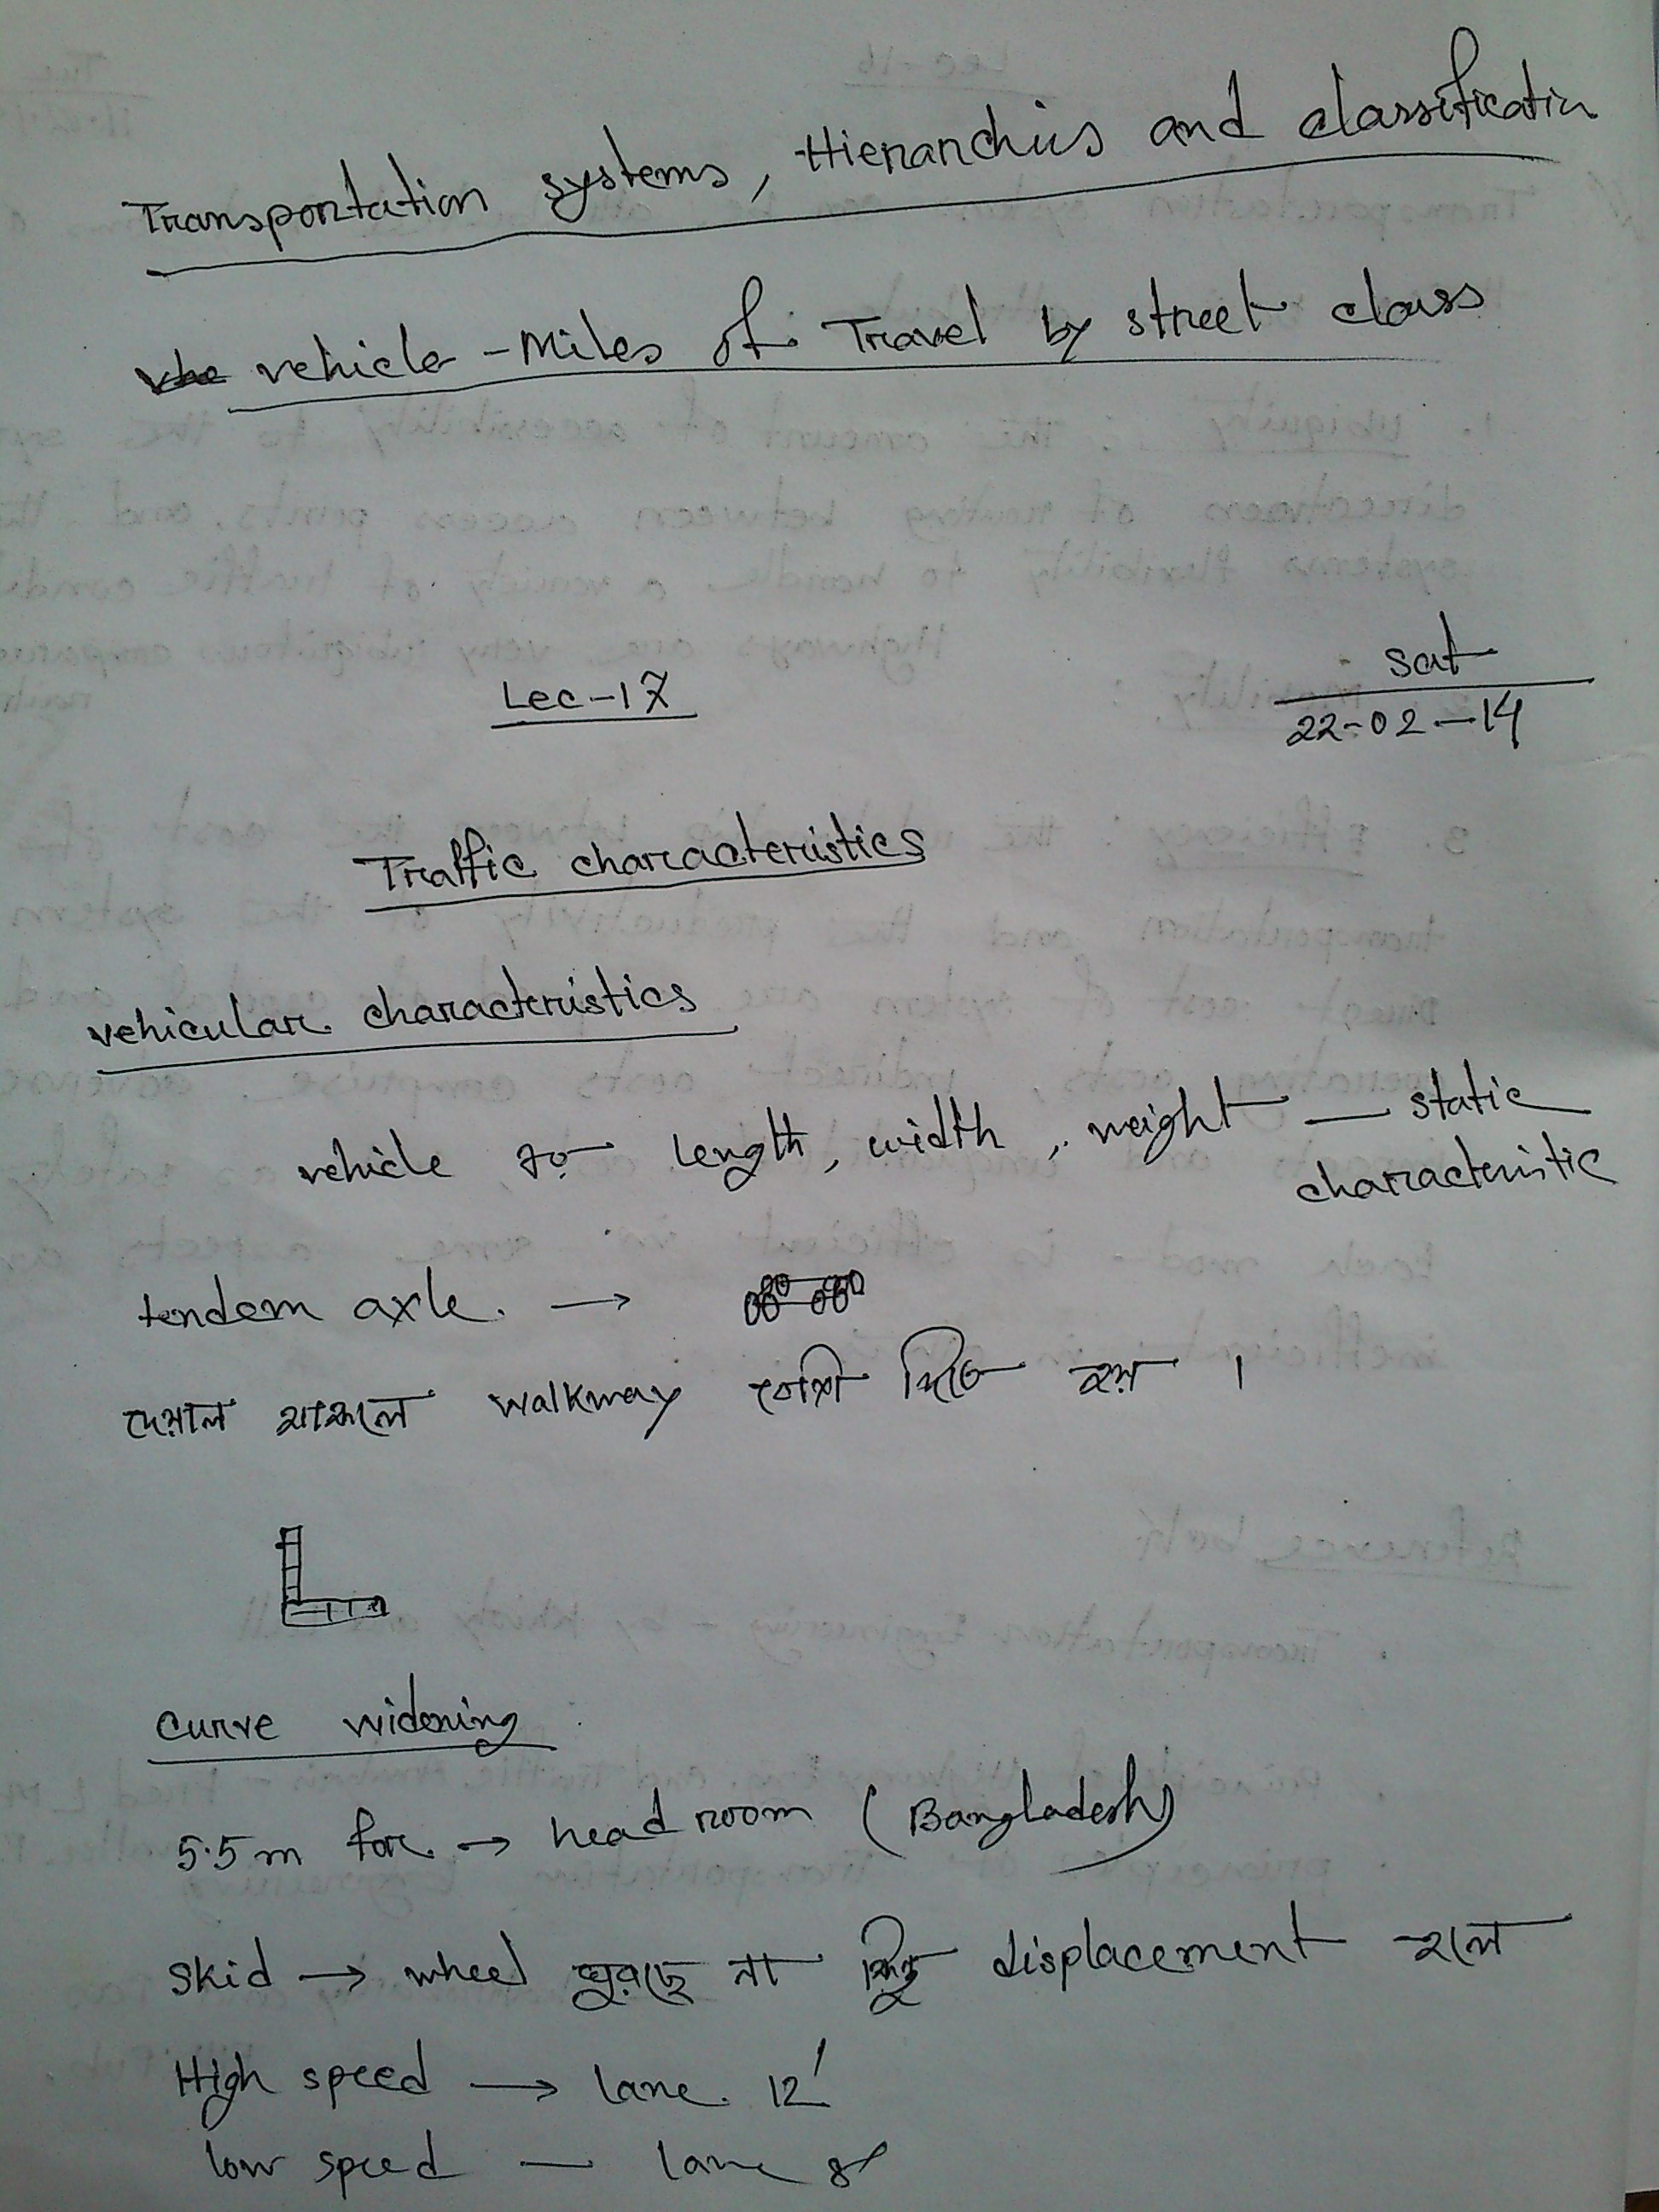 Transportation systems, Hierarchies and classification
vehicle-Miles of Travel by street class
Lec-17
sat
22-02-14
Traffic characteristics
vehicular characteristics
vehicle এর length, width, weight — static
characteristic
tendem axle →
দেয়াল থাকলে walkway বেশি দিতে হয় ।
curve widening
5.5m for → head room (Bangladesh)
skid → wheel ঘুরছে না কিন্তু displacement হলে
High speed → lane 12'
low speed — lane 8'